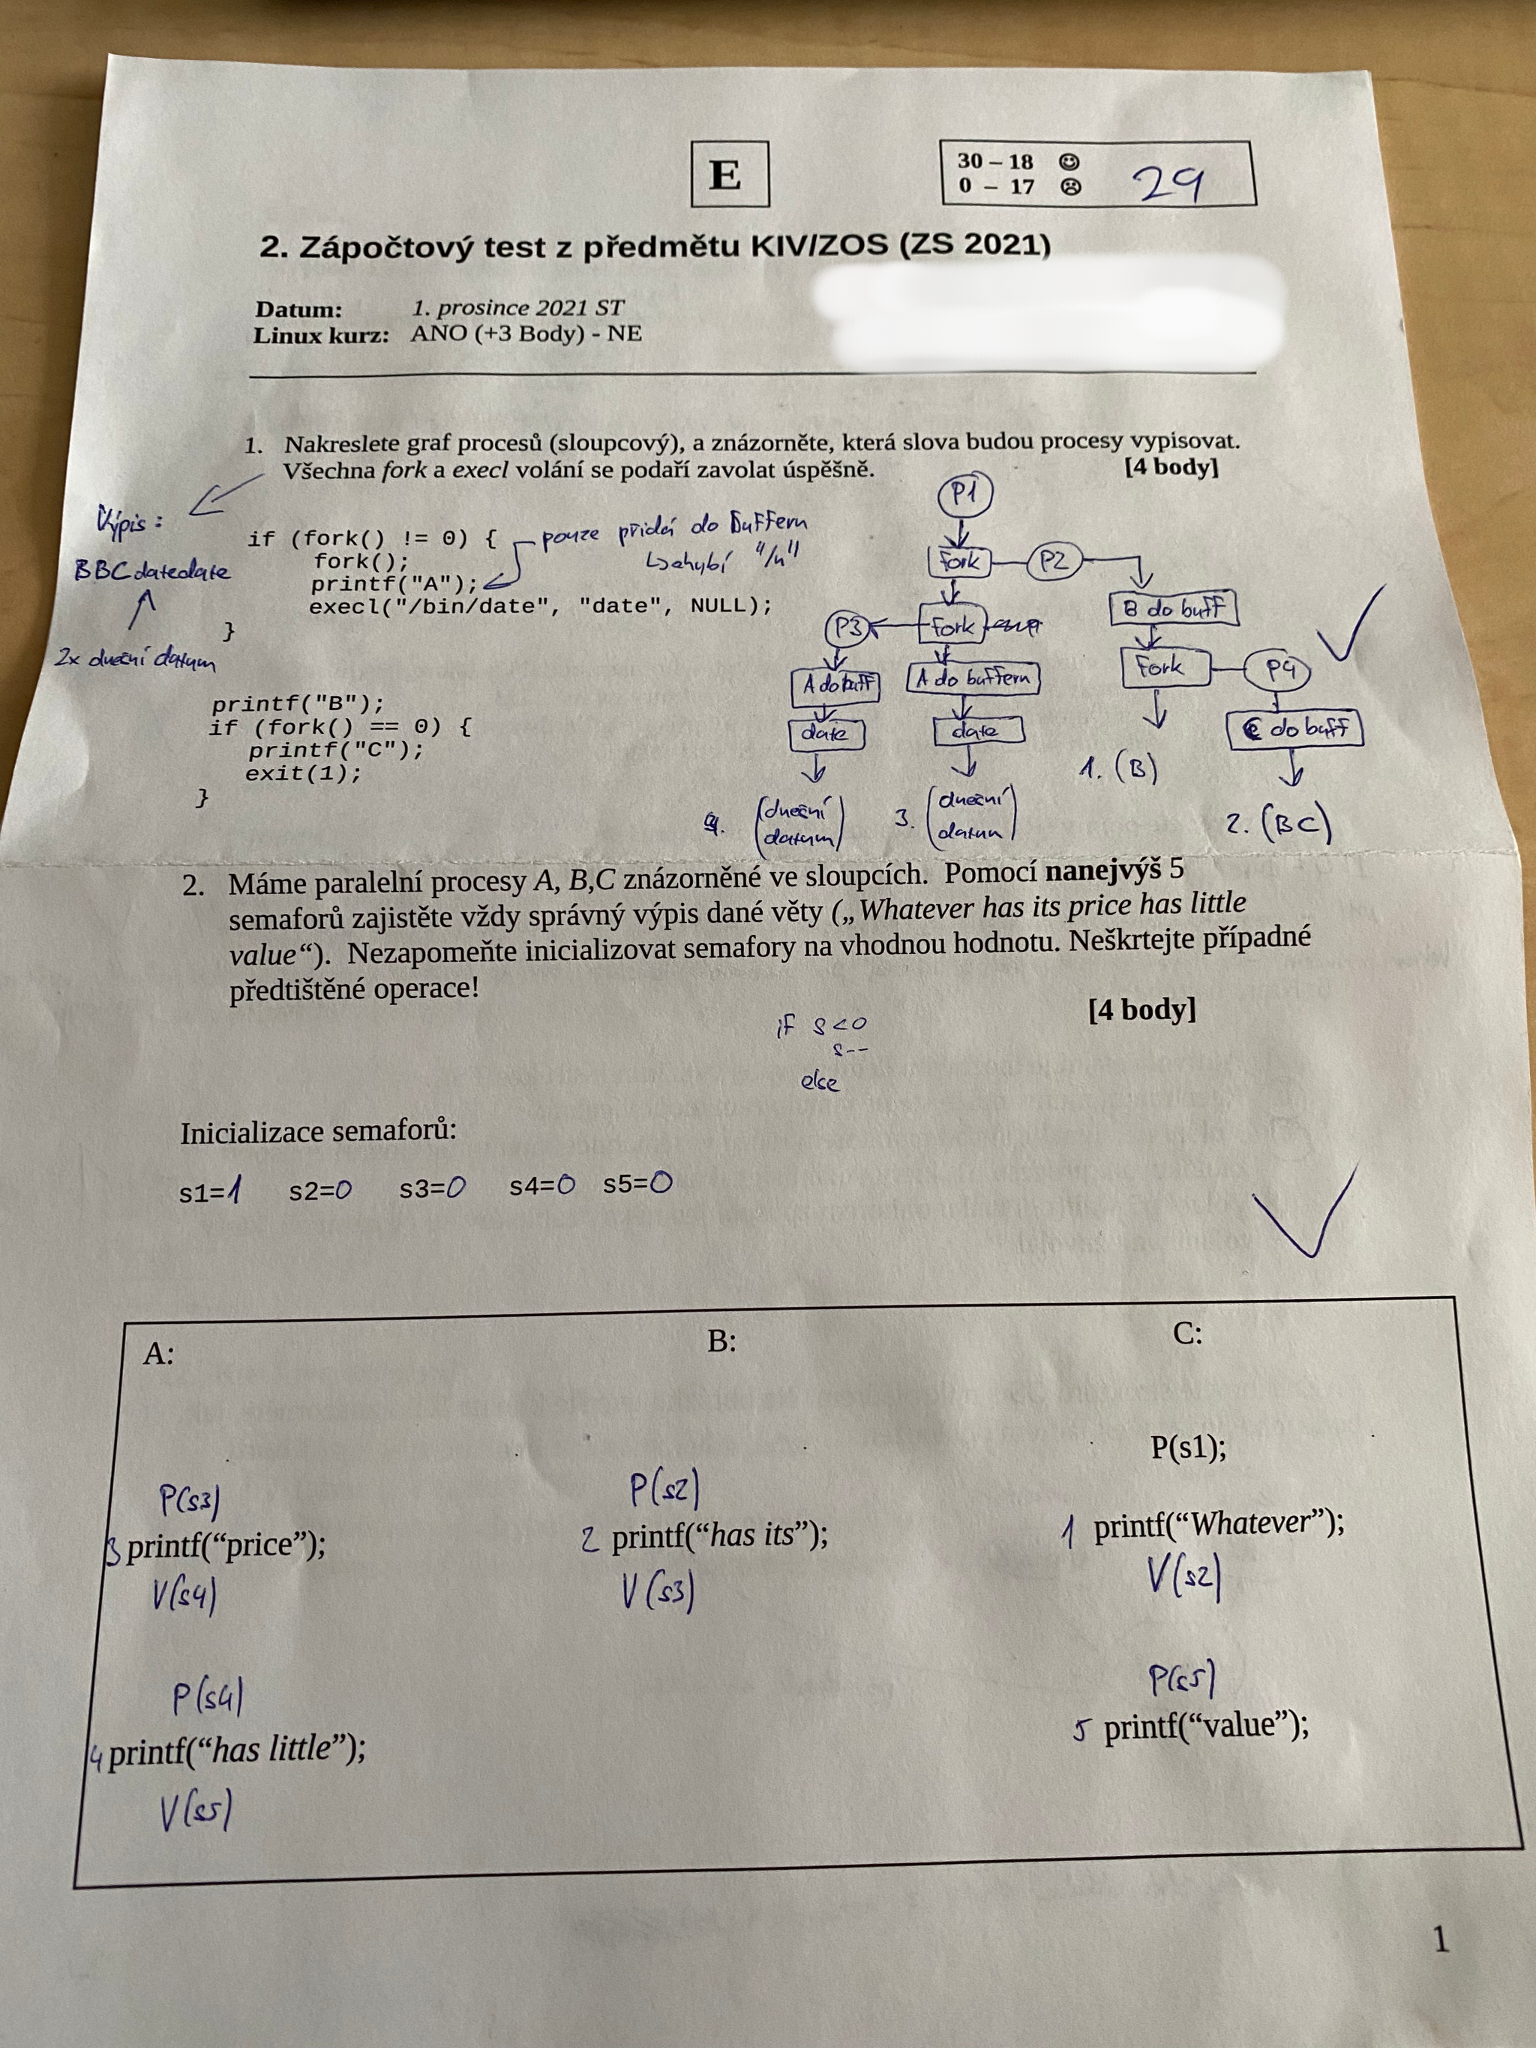 E
30 – 18 ☺
0 – 17 ☹
29
2. Zápočtový test z předmětu KIV/ZOS (ZS 2021)
Datum: 1. prosince 2021 ST
Linux kurz: ANO (+3 Body) - NE
1. Nakreslete graf procesů (sloupcový), a znázorněte, která slova budou procesy vypisovat.
Všechna fork a execl volání se podaří zavolat úspěšně. [4 body]
Výpis:
BBCdatedate
2x dnešní datum
if (fork() != 0) {
fork();
printf("A");
execl("/bin/date", "date", NULL);
}
printf("B");
if (fork() == 0) {
printf("C");
exit(1);
}
pouze přidá do bufferu
chybí "/n"
P1
fork P2
B do buff
P3 fork
fork P4
A do buff A do bufferu
C do buff
date date
1. (B)
4. (dnešní datum) 3. (dnešní datum)
2. (BC)
2. Máme paralelní procesy A, B,C znázorněné ve sloupcích. Pomocí nanejvýš 5
semaforů zajistěte vždy správný výpis dané věty („Whatever has its price has little
value“). Nezapomeňte inicializovat semafory na vhodnou hodnotu. Neškrtejte případné
předtištěné operace!
[4 body]
if s<0
s--
else
Inicializace semaforů:
s1=1 s2=0 s3=0 s4=0 s5=0
A: B: C:
P(s1);
P(s3) P(s2)
3 printf(“price”); 2 printf(“has its”); 1 printf(“Whatever”);
V(s4) V(s3) V(s2)
P(s4) P(s5)
4 printf(“has little”); 5 printf(“value”);
V(s5)
1